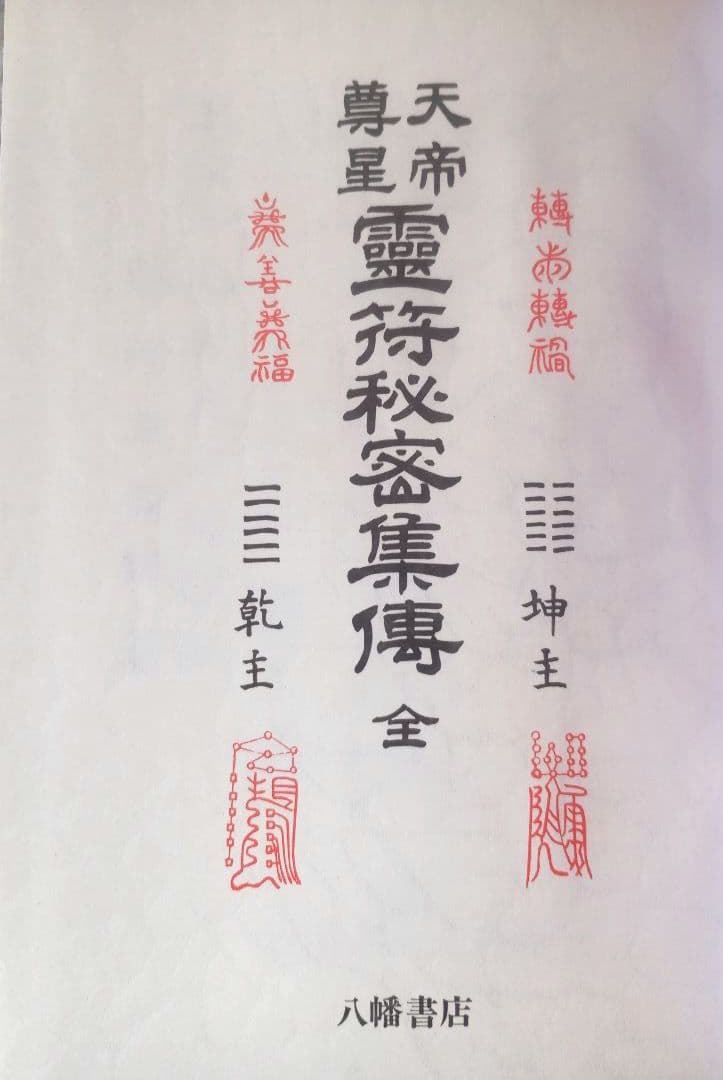 轉轉禍
坤主
天帝
尊星
靈符秘密集傳 全
善福
乾主
八幡書店